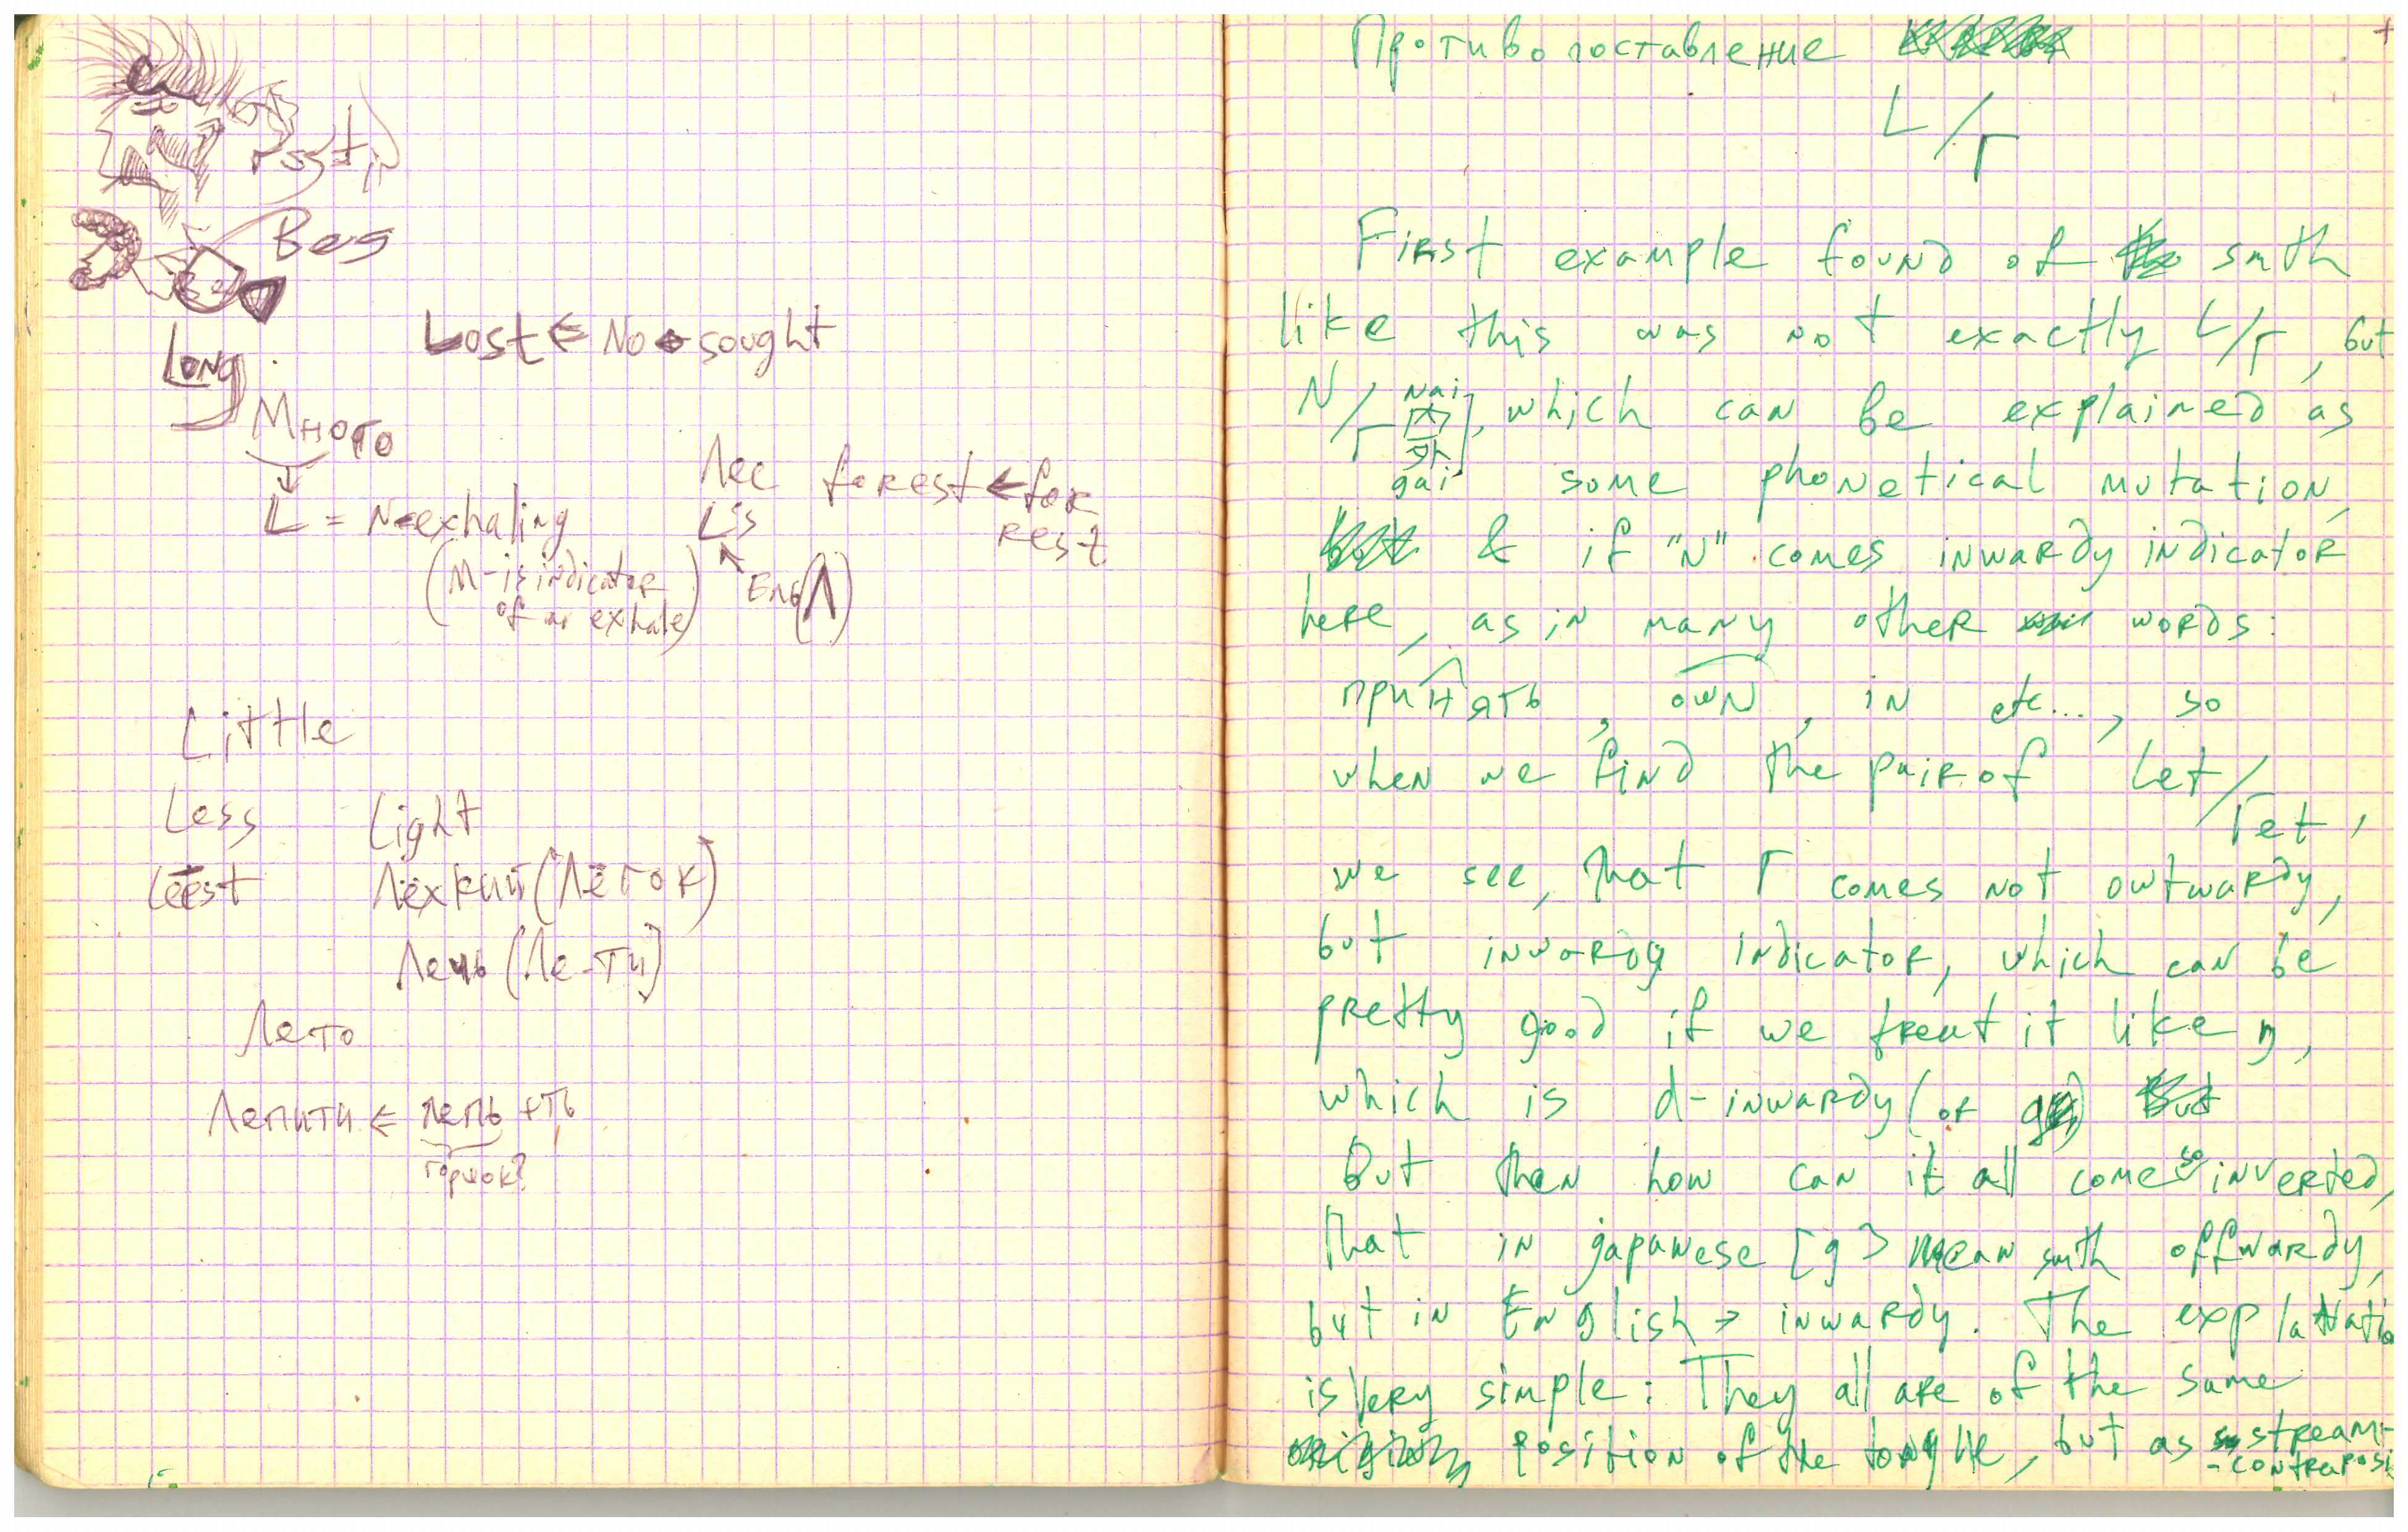 Long
Lost ← No sought
Много
L = N-exhaling
(M - is indicator
of an exhale)
Лес forest ← for
rest
Lis
Ель (Л)
Little
Less Light
Leest Лёхкий (Лёгок)
Лечь (Ле-ти)
Лето
Лепити ← лепь + ть
горшок?
Противопоставление
L/г
First example found of smth
like this was not exactly L/г, but
N/г [Nai 内
外 gai], which can be explained as
some phonetical mutation,
& if "N" comes inwardy indicator
here, as in many other words:
принять, own, in etc..., so
when we find the pair of Let/
Гet,
we see, that Г comes not owtwardy,
but inwardy indicator, which can be
pretty good if we treat it like η,
which is d-inwardy (or
But then how can it all come so inverted,
that in japanese [g] mean smth offwardy,
but in English → inwardy. The explanatio
is very simple: They all are of the same
position of the tongue, but as stream-
-contraposi